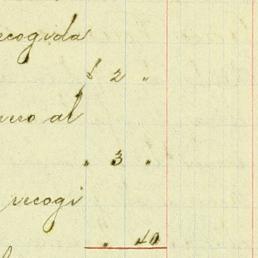 ecogida
$ 2 "
nero al
" 3 "
recogi
" 40